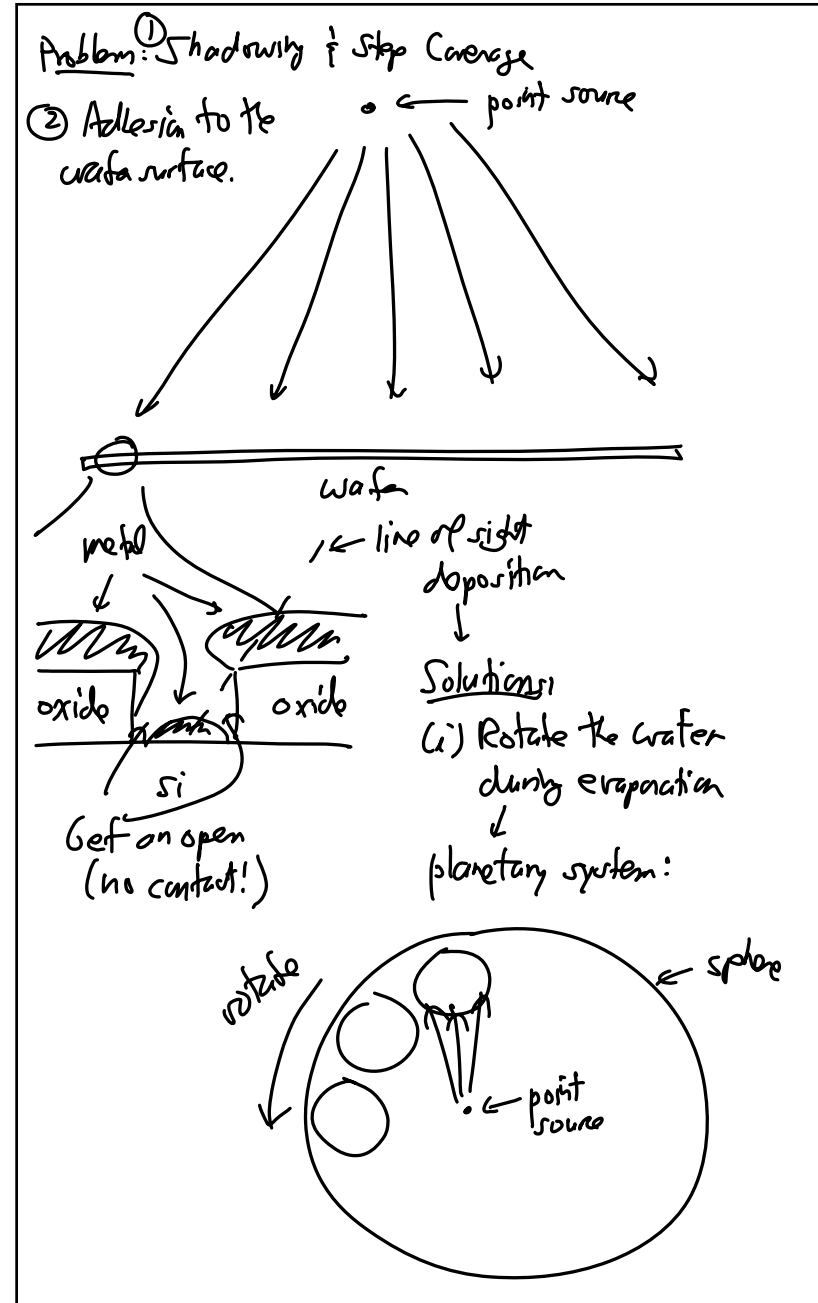 Problem: ① Shadowing & Step Coverage
② Adhesion to the
wafer surface.
point source
wafer
metal
line of sight
deposition
oxide
oxide
si
Get an open
(no contact!)
Solutions:
(i) Rotate the wafer
during evaporation
planetary system:
rotate
sphere
point
source